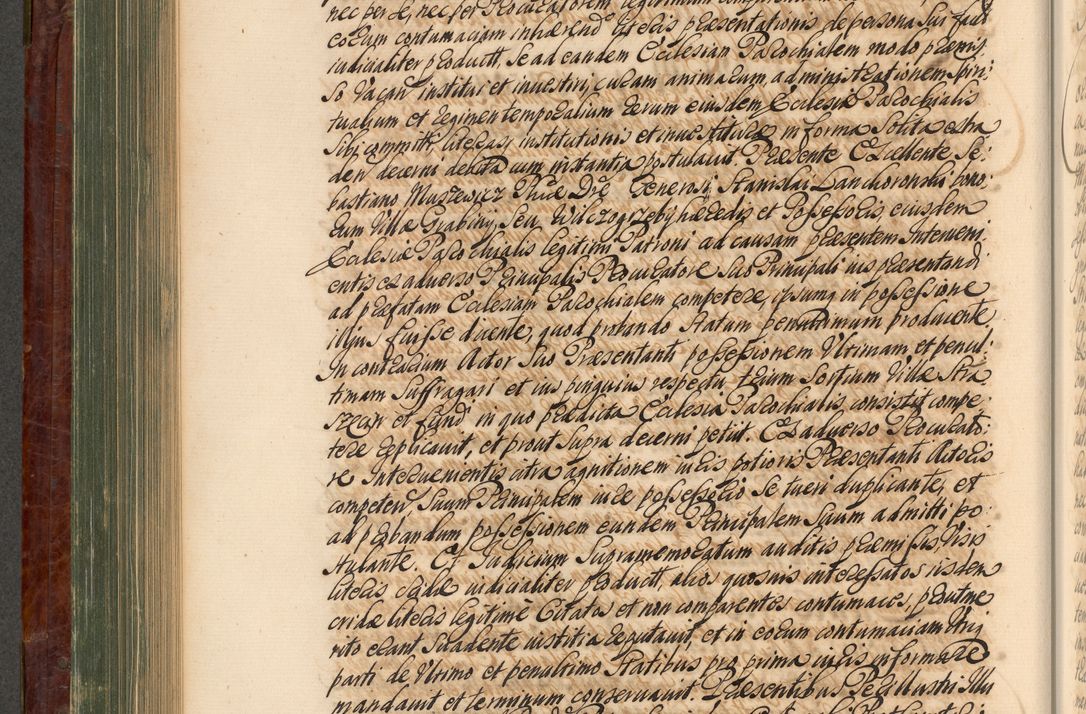 nec per se, nec per Procuratorem legitimum comparentium in
eorum contumaciam inhærend literis præsentationis de persona sui fact
iudicialiter productt, se ad eandem Ecclesiam Parochialem modo præmis,
so vacan institui et investiri, curam animarum administrationem Spiri,
tualium et regimen temporalium rerum eiusdem Ecclesiæ Parochialis
sibi committi, literasq institutionis et investituræ in forma solita extra
den decerni debita cum instantia postulavit. Præsente Excellente Se,
bastiano Muszewicz Generosi Stanislai Lanckoronski bono,
rum Villæ Grabiny, seu Wilczogrzeby hæredis et Possessoris, eiusdem
Ecclesiæ Parochialis legitimi Patroni ad causam præsentem Interveni,
entis ex adverso Principalis Procuratore suo Principali ius præsentandi
ad præfatam Ecclesiam Parochialem competere, ipsumq in possessione
illius fuisse dicente, quod probando statum penultimum producente
In contrarium Actor suo Præsentanti possessionem Ultimam, et penul,
timam suffragari et ius pinguius respectu trium Sortium Villæ Stra
szean et fundi in quo prædicta Ecclesia Parochialis consistit compe,
tere explicavit, et prout supra decerni petiit. Ex adverso Procurato,
re Intervenientis citra agnitionem iuris potioris Præsentanti Actoris
competen, suum Principalem iure possessorio se tueri duplicante, et
ad probandum possessionem eundem Principalem suum admitti po,
stulante. Et Judicium supramemoratum auditis præmissis, visis
literis cridæ iudicialiter productt, alios quosvis interessatos iisdem
cridæ literis legitime Citatos et non comparentes contumaces, prout me
rito erant suadente iustitia reputavit, et in eorum contumaciam utrique
parti de Ultimo et penultimo statibus pro prima iuris informare
mandavit et terminum conservavit. Præsentibus Perillustri Illu